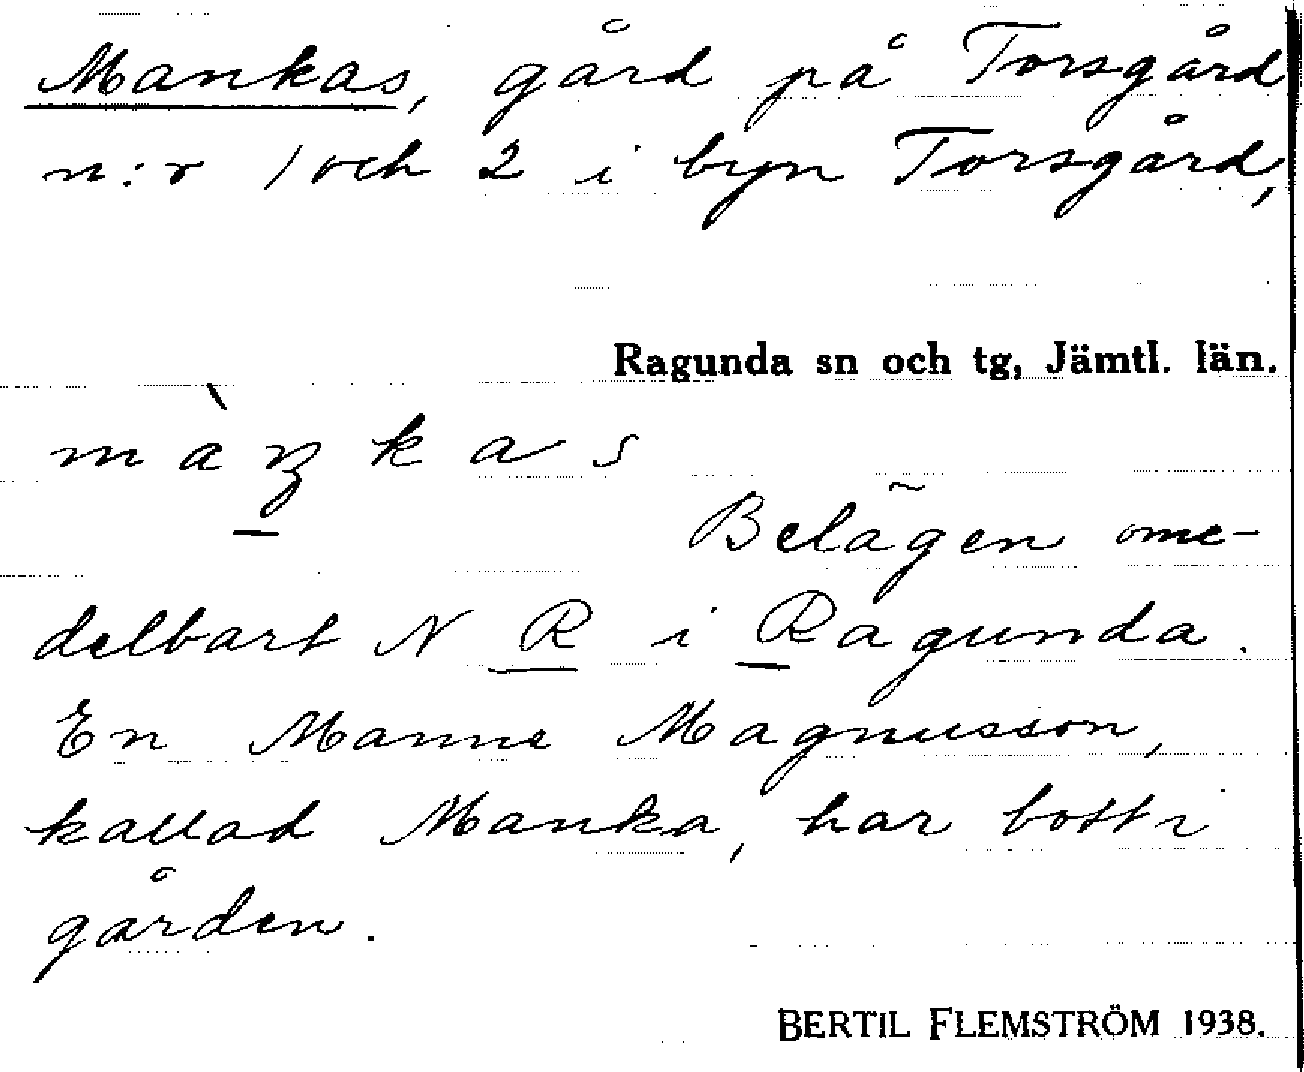 Mankas, gård på Torsgård
n:r 1 och 2 i byn Torsgård,
Ragunda sn och tg, Jämtl. län.
màŋkas
Belägen ome-
delbart N R i Ragunda.
En Manne Magnusson,
kallad Manka, har bott i
gården.
BERTIL FLEMSTRÖM 1938.